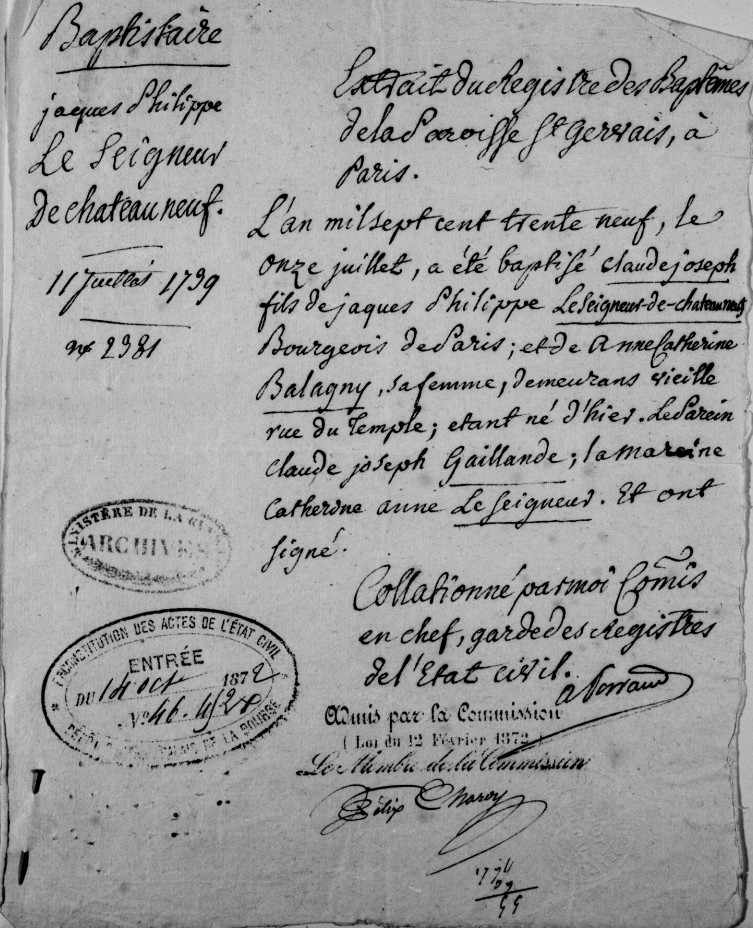 Baptistaire
jaques Philippe
Le Seigneur
De chateauneuf.
11 Juillet 1739
nº 2381
Extrait du Registre des Baptêmes
de la Paroisse St Gervais, à
Paris.
L'an mil sept cent trente neuf, le
onze juillet, a été baptisé claude joseph
fils de jaques Philippe Le Seigneur-de-chateauneuf
Bourgeois de Paris; et de Anne Catherine
Balagny, sa femme, demeurans vieille
rue du Temple; etant né d'hier. Le Parein
claude joseph Gaillande; la mareine
catherine anne Le Seigneur. Et ont
signé.
Collationné par moi Comis
en chef, garde des Registres
de l'Etat civil.
MINISTÈRE DE LA GUERRE
ARCHIVES
RECONSTITUTION DES ACTES DE L'ÉTAT CIVIL
ENTRÉE
DU 14 oct 1872
Nº 46.
DE LA BOURSE
Admis par la Commission
(Loi du 12 Février 1872)
Le Membre de la Commission
Félix